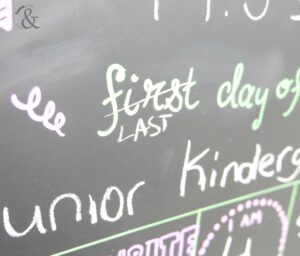 &
first day of
LAST
unior Kinderg
I AM